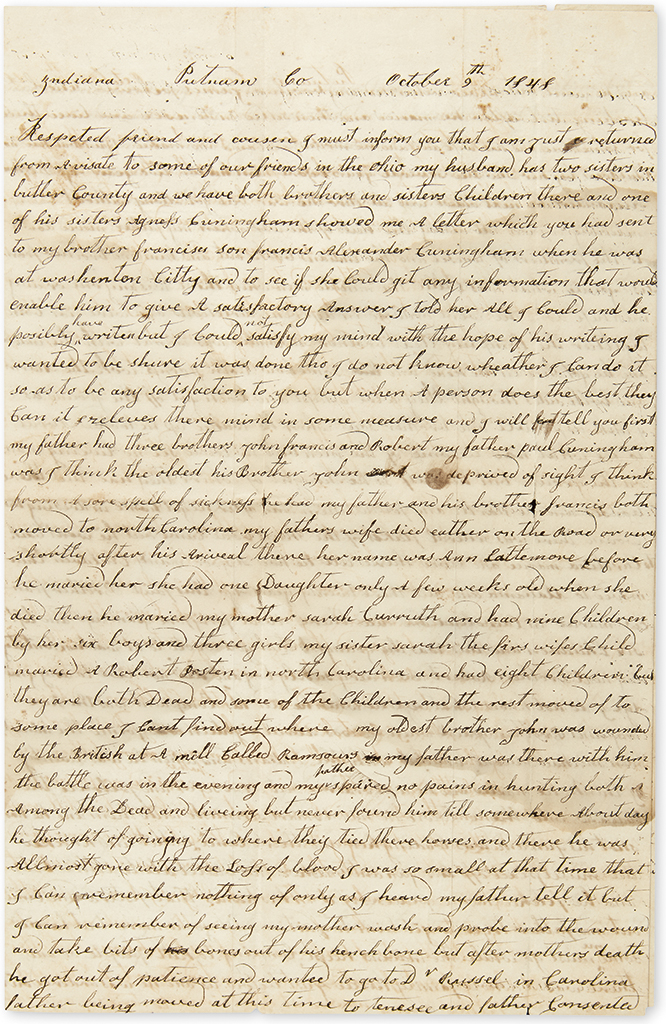 Indiana Putnam Co October 9th 1848
Respeted friend and cousen I must inform you that I am just returned
from A visate to some of our friends in the Ohio my husband has two sisters in
butler County and we have both brothers and sisters Children there and one
of his sisters Agness Cuningham showed me A letter which you had sent
to my brother francises son francis Alexander Cuningham when he was
at washenton Citty and to see if she Could git any information that would
enable him to give A satisfactory Answer I told her All I Could and he
posibly have writen but I Could not satisfy my mind with the hope of his writeing I
wanted to be shure it was done tho I do not know wheather I Can do it
so as to be any satisfaction to you but when A person does the best they
Can it releves there mind in some measure and I will tell you first
my father had three brothers John francis and Robert my father paul Cuningham
was I think the oldest his Brother John was deprived of sight I think
from A sore spell of sickness he had my father and his brother francis both
moved to north Carolina my fathers wife died eather on the Road or very
shortly after his Ariveal there her name was Ann Lattemore before
he maried her she had one Daughter only A few weeks old when she
died then he maried my mother sarah Curruth and had nine Children
by her six boys and three girls my sister sarah the firs wifes Child
maried A Robert Posten in north Carolina and had eight Children but
they are both Dead and some of the Children and the rest moved of to
some place I Cant find out where my oldest brother John was wounded
by the British at A mill Called Ramsours my father was there with him
the battle was in the evening and my father spared no pains in hunting both
Among the Dead and liveing but never found him till somewhere About day
he thought of going to where they tied there horses and there he was
Allmost gone with the Loss of blood I was so small at that time that
I Can remember nothing of only as I heard my father tell it but
I Can remember of seeing my mother wash and probe into the wound
and take bits of bones out of his henchbone but after mothers death
he got out of patience and wanted to go to Dr Russel in Carolina
father being moved at this time to tenesee and father Consented